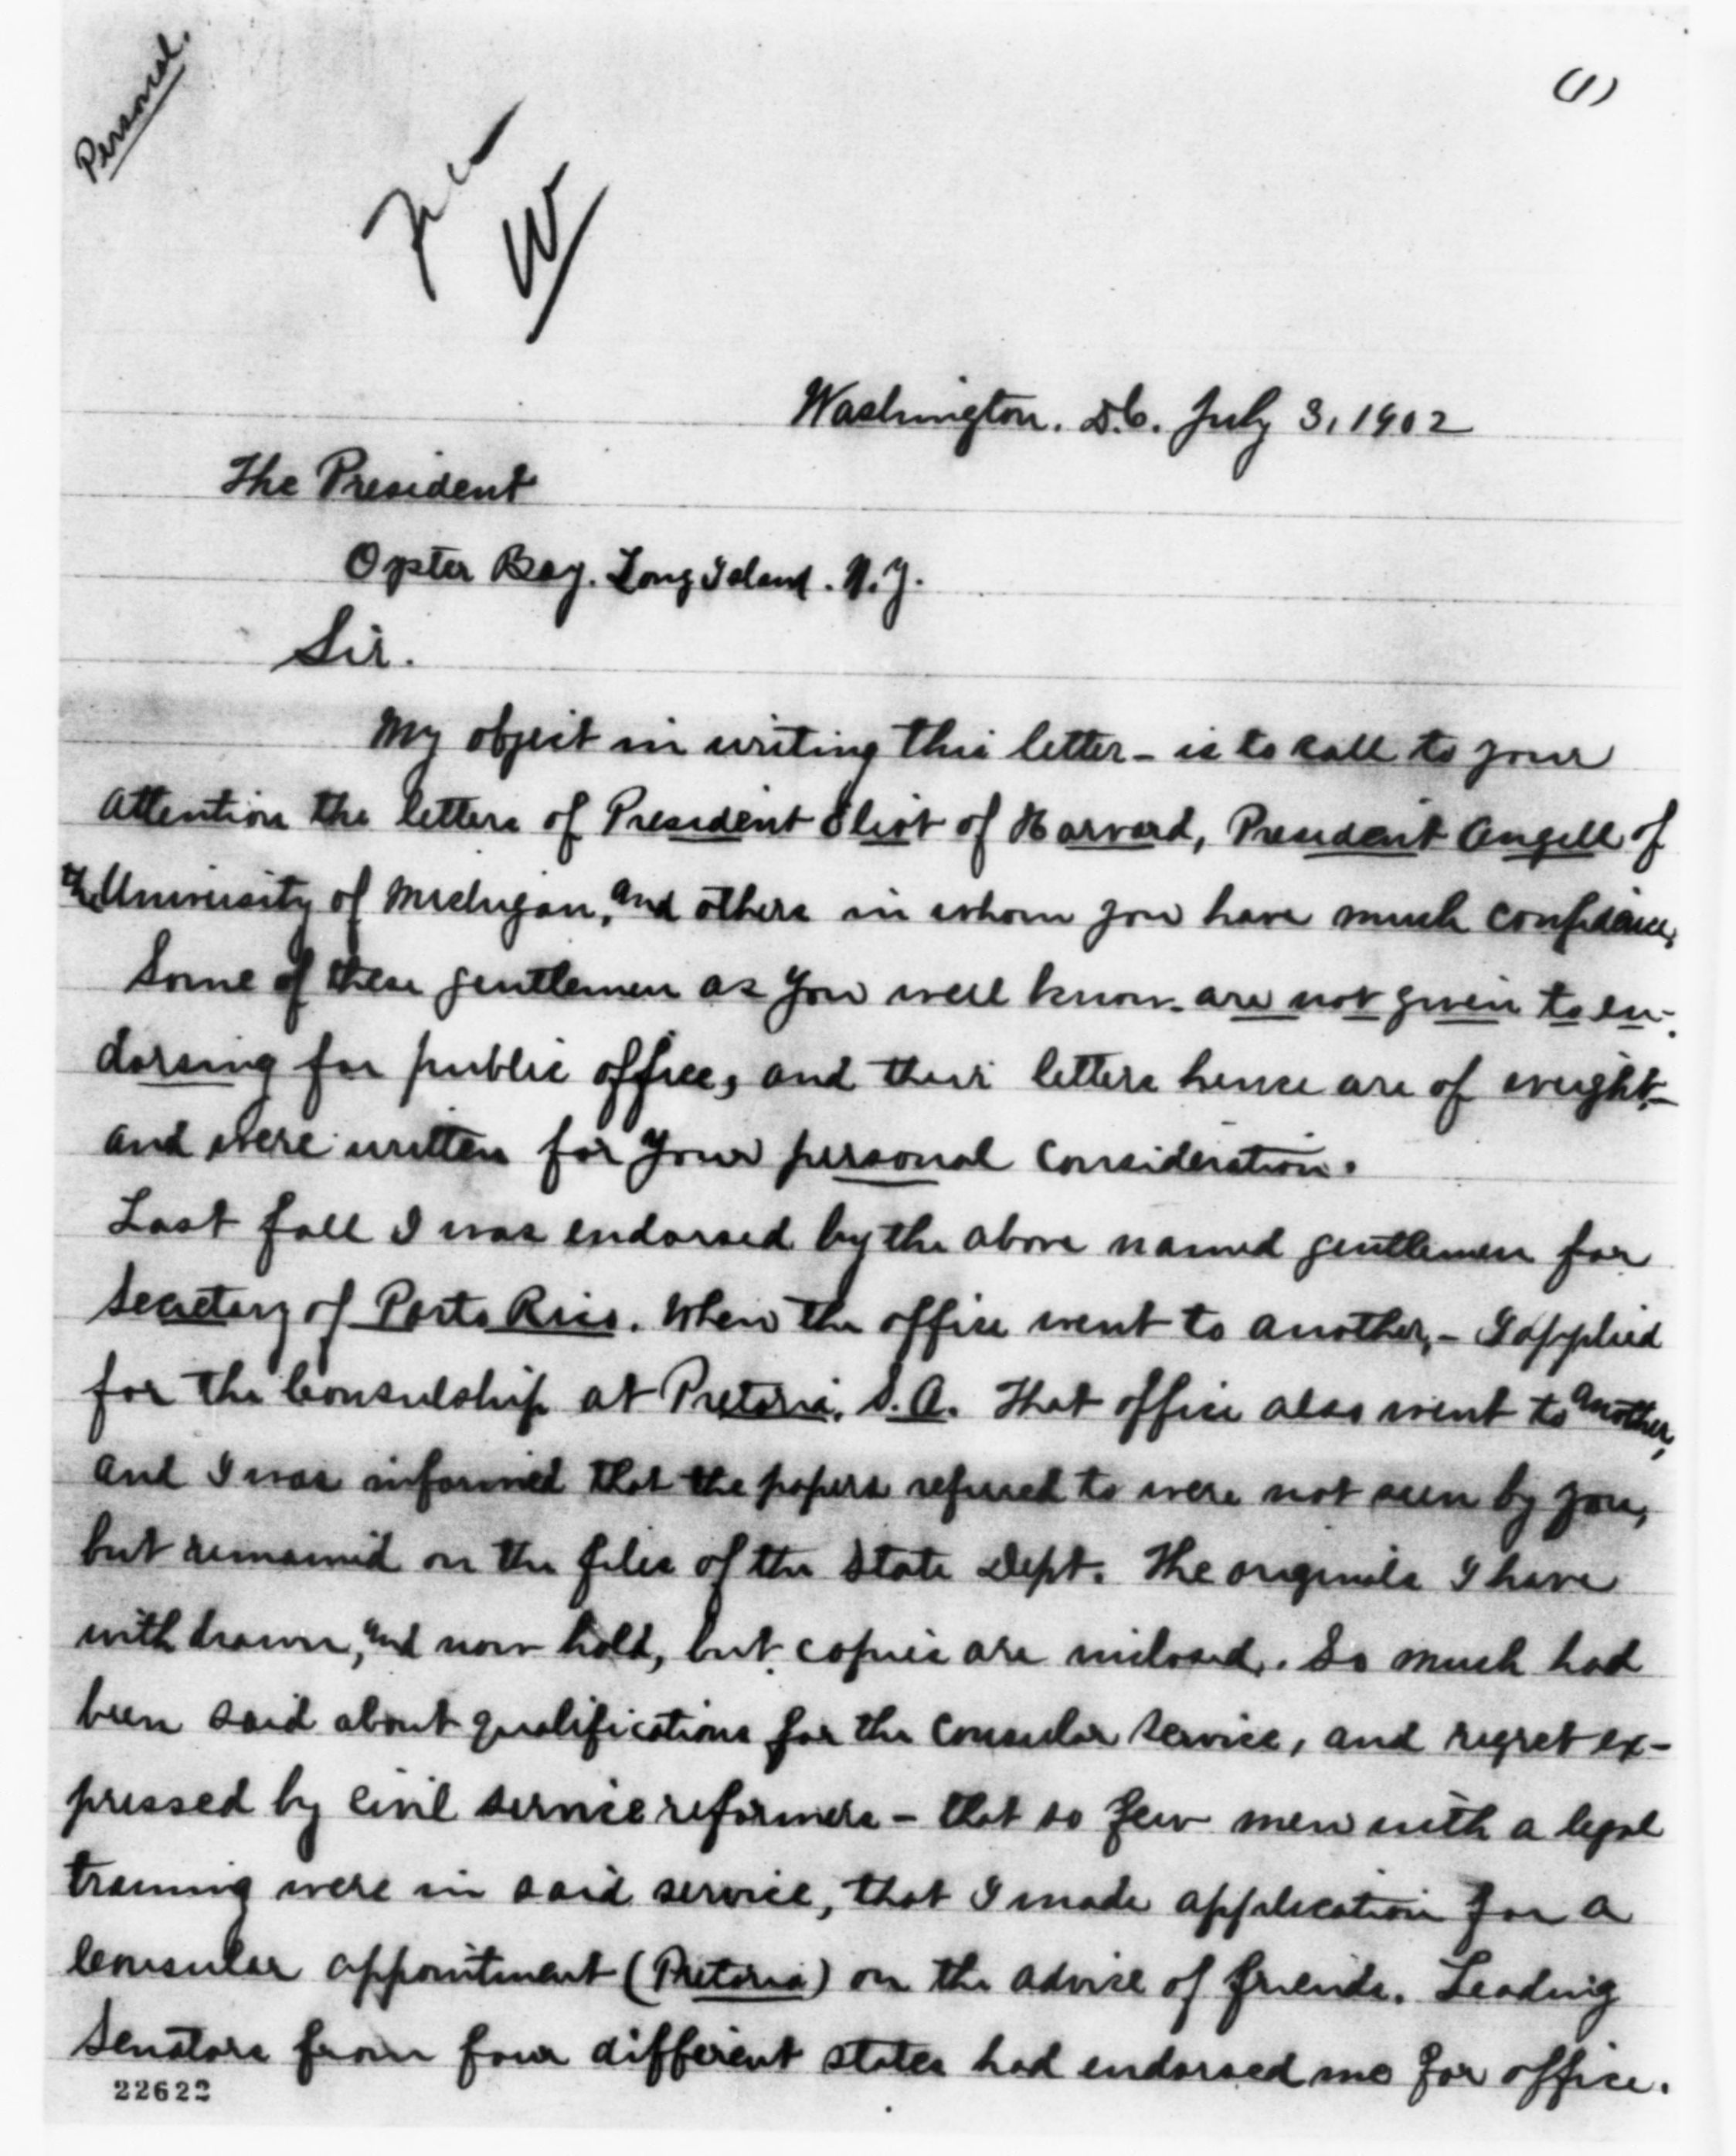 Personal.
(1)
File
W
Washington. D.C. July 3, 1902
The President
Oyster Bay. Long Island. N.Y.
Sir.
My object in writing this letter - is to call to your
attention the letters of President Eliot of Harvard, President Angell of
the University of Michigan, and others in whom you have much confidence.
Some of these gentlemen as you well know - are not given to en-
dorsing for public office, and their letters hence are of weight -
and were written for your personal consideration.
Last fall I was endorsed by the above named gentlemen for
Secretary of Porto Rico. When the office went to another, - I applied
for the Consulship at Pretoria, S.A. That office also went to another,
and I was informed that the papers referred to were not seen by you,
but remained on the files of the State Dept. The originals I have
withdrawn, and now hold, but copies are inclosed. So much had
been said about qualifications for the Consular Service, and regret ex-
pressed by civil service reformers - that so few men with a legal
training were in said service, that I made application for a
Consular appointment (Pretoria) on the advice of friends. Leading
Senators from four different states had endorsed me for office.
22622